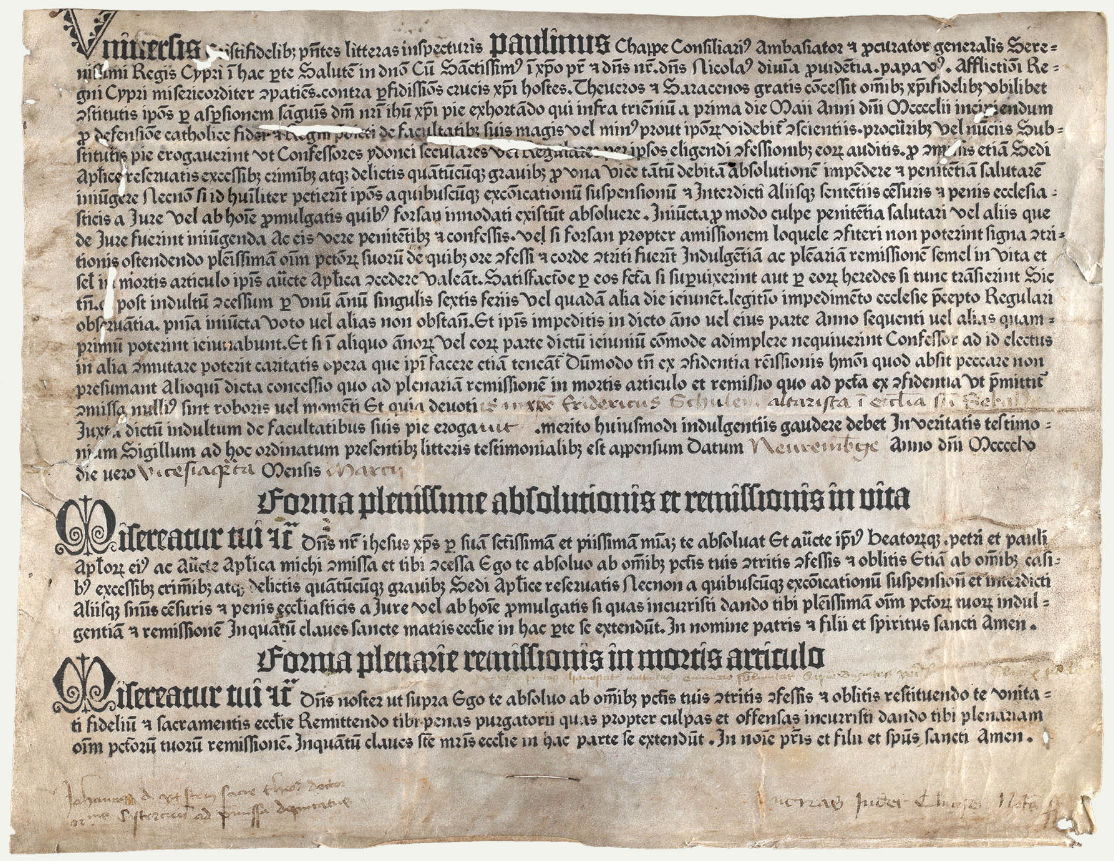 Vniuersis ...istifidelibꝫ pn̄tes litteras inspecturis Paulinus Chappe Consiliariꝰ Ambasiator ⁊ ꝓcurator generalis Sere⸗
nissimi Regis Cypri ī hac ꝑte Salutē in dn̄o Cū Sāctissimꝰ ī xp̄o pr̄ ⁊ dn̄s nr̄. dn̄s Nicolaꝰ diuīa ꝓuidētia. papa vꝰ. Afflictiōi Re⸗
gni Cypri misericorditer ꝯpatiēs. contra ꝑfidissiōs crucis xp̄i hostes. Theucros ⁊ Saracenos gratis cōcessit om̄ibꝫ xp̄ifidelibꝫ vbilibet
ꝯstitutis ip̄os ꝑ aspersionem sāguīs dn̄i nr̄i ih̄u xp̄i pie exhortādo qui infra trienniū a prima die Maii Anni dn̄i Mcccclii incipiendum
ꝓ defensiōe catholice fidei ⁊ Regni p̄dicti de facultatibꝫ suis magis vel minꝰ prout ip̄oꝝ videbit̄ ꝯscientiis. procu̅ribꝫ vel nūciis Sub⸗
stitutis pie erogauerint vt Confessores ydonei seculares vel Regulares per ipsos eligendi ꝯfessionibꝫ eoꝝ auditis. ꝓ ꝯmissis etiā Sedi
Aplice reseruatis excessibꝫ crimībꝫ atqꝫ delictis quātūcūqꝫ grauibꝫ ꝓ vna vice tātū debitā absolutionē impēdere ⁊ penitētiā salutarē
iniūgere Necnō si id hūiliter petierīt ip̄os a quibuscūqꝫ excōicationū suspensionū ⁊ Interdicti Aliisqꝫ sentētiis cēsuris ⁊ penis ecclesia⸗
sticis a Jure vel ab hoīe ꝓmulgatis quibꝰ forsan innodati existūt absoluere. Iniūcta ꝓ modo culpe penitētia salutari vel aliis que
de Jure fuerint iniūgenda Ac eis vere penitētibꝫ ⁊ confessis. vel si forsan propter amissionem loquele ꝯfiteri non poterint signa ꝯtri⸗
tionis ostendendo plēissimā oīm pctōꝝ suoꝝ de quibꝫ ore ꝯfessi ⁊ corde ꝯtriti fuerīt Indulgētiā ac plēariā remissionē semel in vita et
sel̄ in mortis articulo ip̄is auc̄te Aplica ꝯcedere valeāt. Satisfactōe ꝑ eos fc̄ta si supuixerint aut ꝑ eoꝝ heredes si tunc trāsierint Sic
tn̄. ꝙ post indultū ꝯcessum ꝑ vnū ānū singulis sextis feriis vel quadā alia die ieiunēt. legitīo impedimēto ecclesie p̄cepto Regulari
obseruātia. pn̄ia iniūcta voto uel alias non obstan̄. Et ip̄is impeditis in dicto āno uel eius parte Anno sequenti uel alias quam⸗
primū poterint ieiunabunt. Et si ī aliquo ānoꝝ vel eoꝝ parte dictū ieiuniū cōmode adimplere nequiuerint Confessor ad id electus
in alia ꝯmutare poterit caritatis opera que ip̄i facere etiā teneāt̄ Dūmodo tn̄ ex ꝯfidentia rēissionis hmōi quod absit peccare non
presumant Alioqui dicta concessio quo ad plenariam remissionē in mortis articulo et remissio quo ad pctā ex ꝯfidentia vt p̄mittit̄
ꝯmissa nulliꝰ sint roboris uel momēti Et quia deuoti Fridericus Schulem altarista ī ecclia
Juxta dictū indultum de facultatibus suis pie erogauit .merito huiusmodi indulgentiis gaudere debet In veritatis testimo⸗
nium Sigillum ad hoc ordinatum presentibꝫ litteris testimonialibꝫ est appensum Datum Nuremberge Anno dn̄i Mcccclv
die vero vicesiaqrta Mensis Marcii
Forma plenissime absolutionis et remissionis in vita
Misereatur tui ⁊c̄ Dn̄s nr̄ ihesus xp̄s ꝑ suā sctīssimā et piissimā mīaꝫ te absoluat Et auc̄te ip̄iꝰ beatoꝝqꝫ petri et pauli
Apl̄oꝝ eiꝰ ac auc̄te Aplica michi ꝯmissa et tibi ꝯcessa Ego te absoluo ab om̄ibꝫ pctīs tuis ꝯtritis ꝯfessis ⁊ oblitis Etiā ab om̄ibꝫ casi⸗
bꝰ excessibꝫ crimībꝫ atqꝫ delictis quātūcūqꝫ grauibꝫ Sedi Aplice reseruatis Necnon a quibuscūqꝫ excōicationū suspensionū et interdicti
Aliisqꝫ snīis cēsuris ⁊ penis ecclīasticis a Jure vel ab hoīe ꝓmulgatis si quas incurristi dando tibi plēissimā oīm pctōꝝ tuoꝝ indul⸗
gentiā ⁊ remissionē Inquātū claues sancte matris ecclīe in hac ꝑte se extendūt. In nomine patris ⁊ filii et spiritus sancti Amen.
Forma plenarie remissionis in mortis articulo
Misereatur tui ⁊c̄ Dn̄s noster ut supra Ego te absoluo ab om̄ibꝫ pctīs tuis ꝯtritis ꝯfessis ⁊ oblitis restituendo te vnita⸗
ti fideliū ⁊ sacramentis ecclīe Remittendo tibi penas purgatorii quas propter culpas et offensas incurristi dando tibi plenariam
oīm pctōrū tuorū remissionē. Inquātū claues stē mr̄is ecclīe in hac parte se extendūt. In noīe pr̄is et filii et spūs sancti Amen.
Johannes
ad p̄missa deputatus